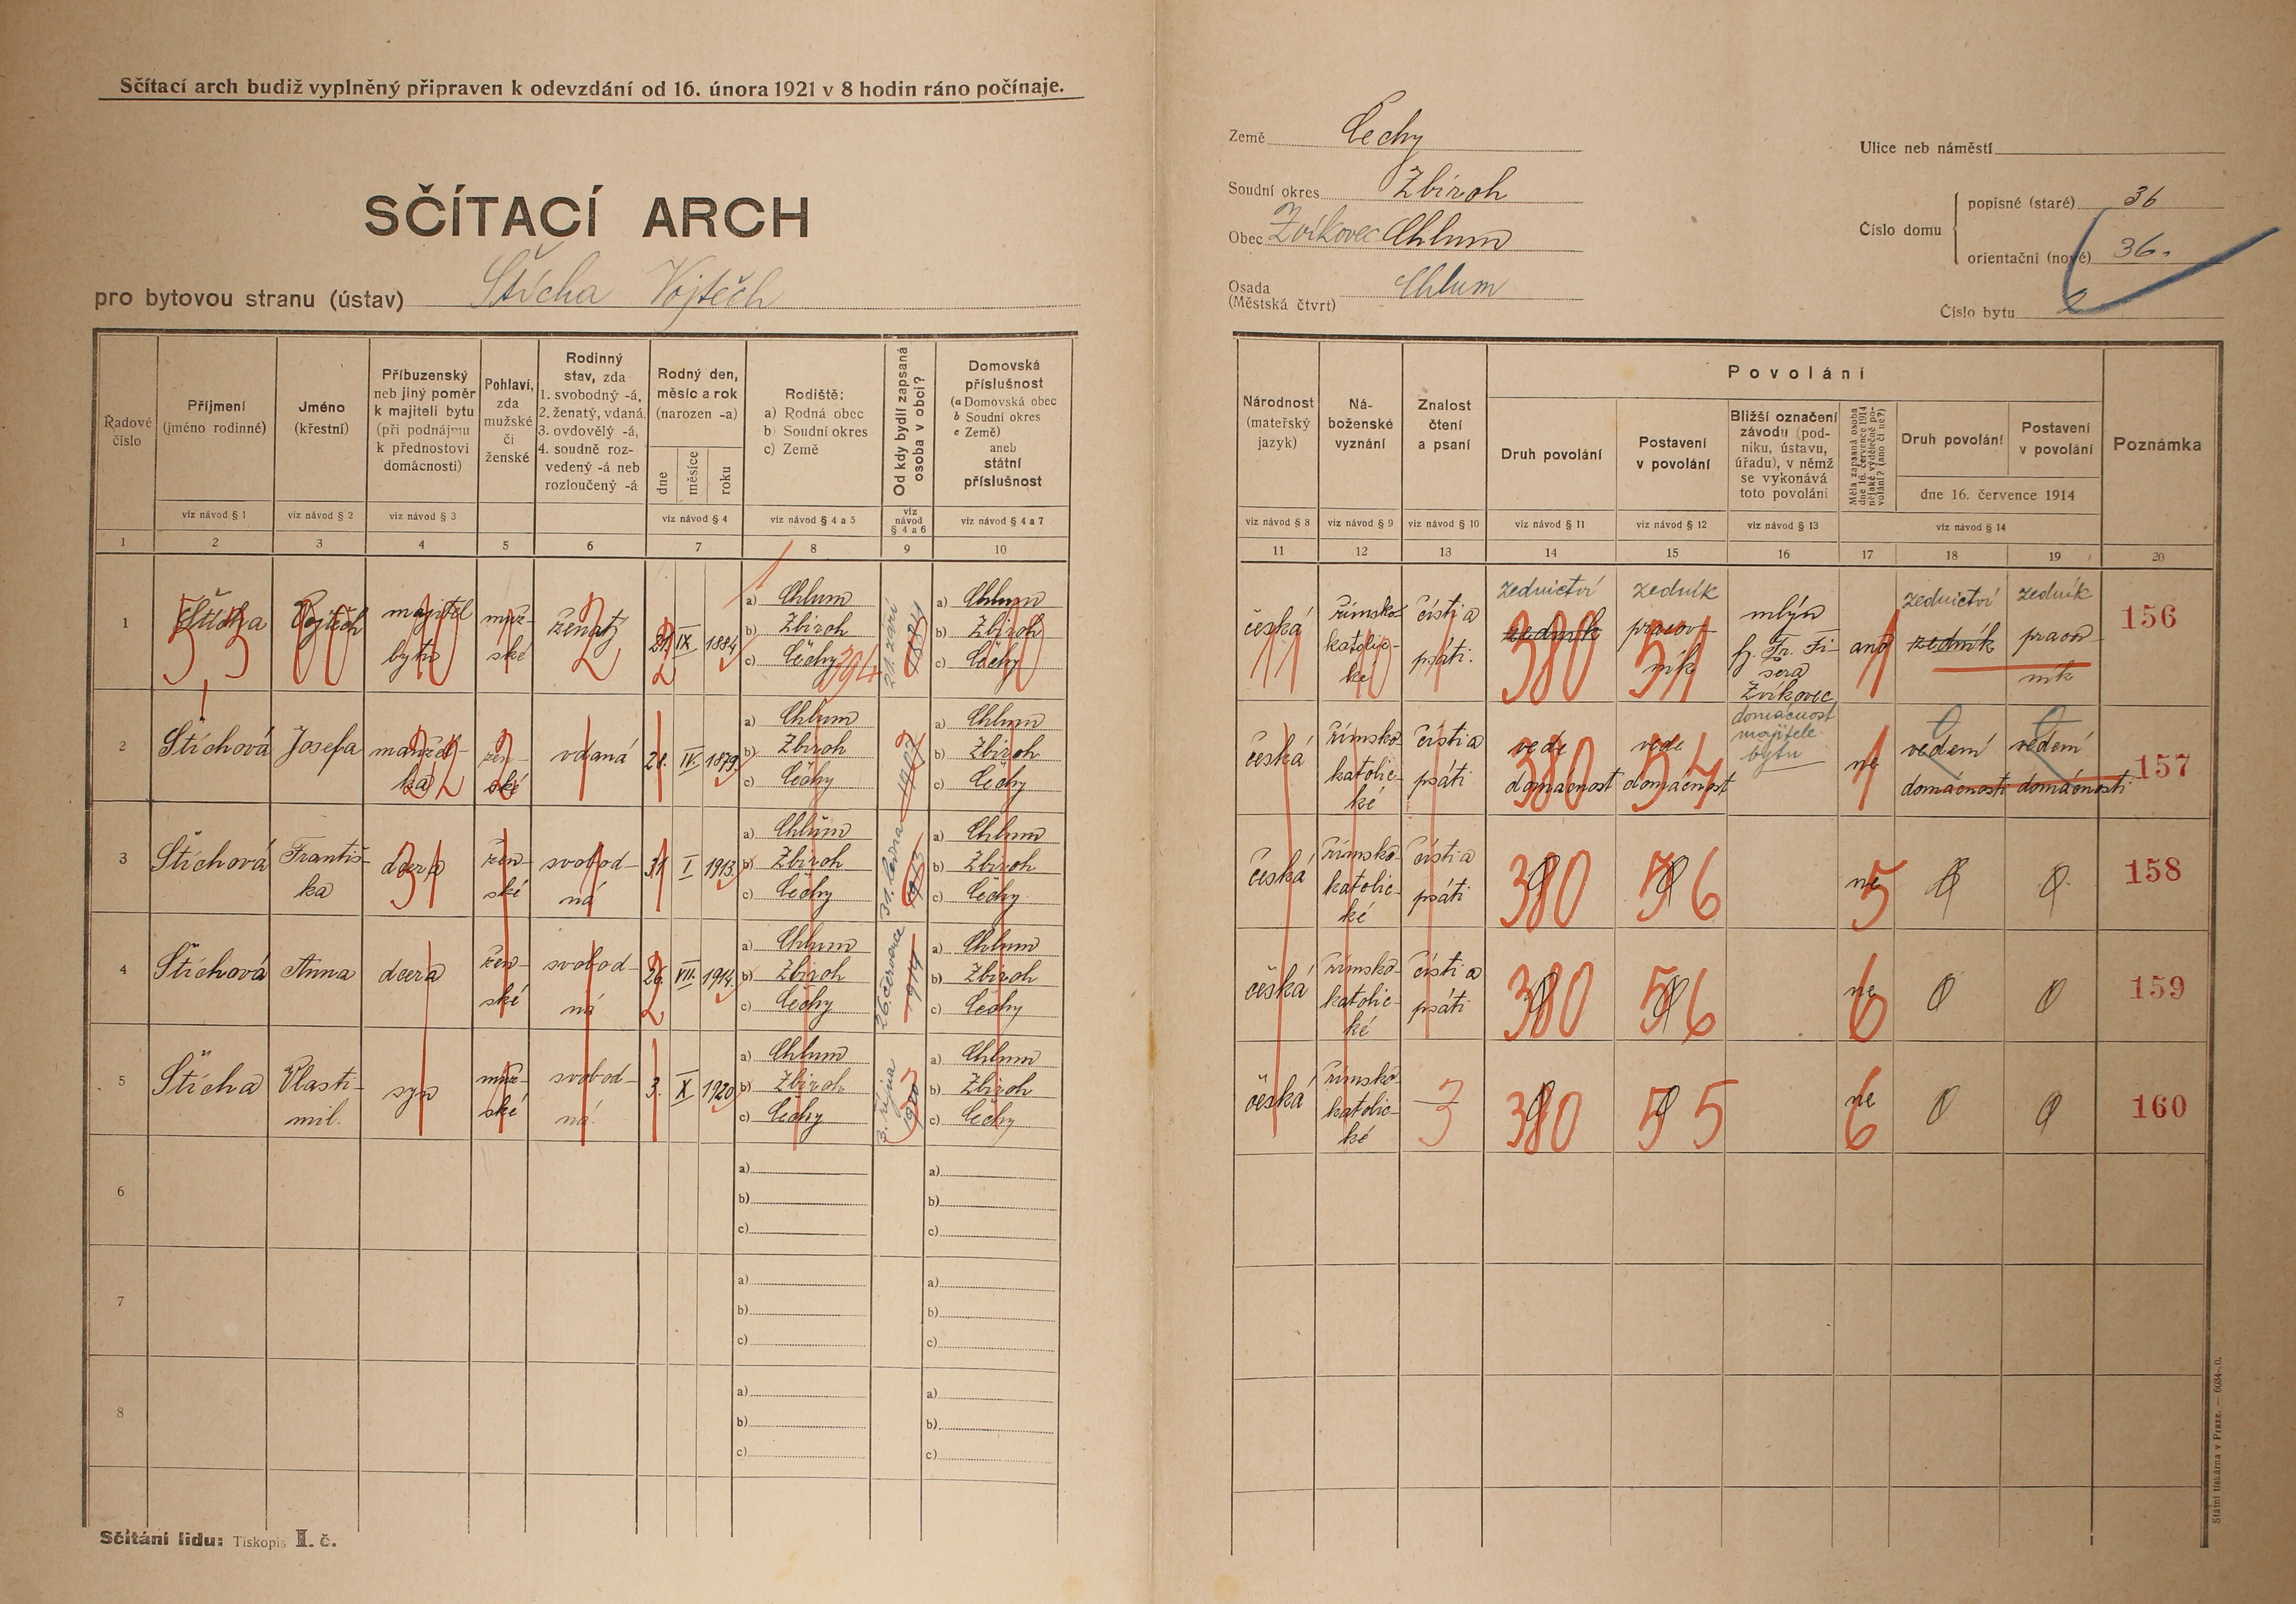 Sčítací arch budiž vyplněný připraven k odevzdání od 16. února 1921 v 8 hodin ráno počínaje.
SČÍTACÍ ARCH
pro bytovou stranu (ústav) Štícha Vojtěch
Země Čechy
Soudní okres Zbiroh
Obec Zvíkovec Chlum
Osada
(Městská čtvrt) Chlum
Ulice neb náměstí
Číslo domu
popisné (staré) 36
orientační (nové) 36.
Číslo bytu
Řadové číslo
Příjmení
(jméno rodinné)
Jméno
(křestní)
Příbuzenský
neb jiný poměr
k majiteli bytu
(při podnájmu
k přednostovi
domácnosti)
Pohlaví,
zda
mužské
či
ženské
Rodinný
stav, zda
1. svobodný -á,
2. ženatý, vdaná,
3. ovdovělý -á,
4. soudně roz-
vedený -á neb
rozloučený -á
Rodný den,
měsíc a rok
(narozen -a)
dne
měsíce
roku
Rodiště:
a) Rodná obec
b) Soudní okres
c) Země
Od kdy bydlí zapsaná
osoba v obci?
Domovská
příslušnost
(a Domovská obec
b Soudní okres
c Země)
aneb
státní
příslušnost
viz návod § 1
viz návod § 2
viz návod § 3
viz návod § 4
viz návod § 4 a 5
viz
návod
§ 4 a 6
viz návod § 4 a 7
1 2 3 4 5 6 7 8 9 10
Národnost
(mateřský
jazyk)
Ná-
boženské
vyznání
Znalost
čtení
a psaní
Povolání
Druh povolání
Postavení
v povolání
Bližší označení
závodu (pod-
niku, ústavu,
úřadu), v němž
se vykonává
toto povolání
Měla zapsaná osoba
dne 16. července 1914
nějaké výdělečné po-
volání? (ano či ne?)
Druh povolání
Postavení
v povolání
dne 16. července 1914
Poznámka
viz návod § 8
viz návod § 9
viz návod § 10
viz návod § 11
viz návod § 12
viz návod § 13
viz návod § 14
11 12 13 14 15 16 17 18 19 20
1 Štícha Vojtěch majitel bytu muž-ské ženatý 21. IX. 1884
a) Chlum
b) Zbiroh
c) Čechy
394
21. září 1884
a) Chlum
b) Zbiroh
c) Čechy
česká římsko-katolic-ké čísti a psáti.
zednictví zedník
zedník pracov-ník
380 51
mlýn
fy. Fr. Fi-
šera
Zvíkovec
ano
zednictví zedník
zedník pracov-ník
156
2 Štíchová Josefa manžel-ka žen-ské vdaná 21. IV. 1879
a) Chlum
b) Zbiroh
c) Čechy
1907
a) Chlum
b) Zbiroh
c) Čechy
česká římsko-katolic-ké čísti a psáti
vede domácnost vede domácnost
380 54
domácnost
majitele
bytu
ne
vedení domácnosti vedení domácnosti
157
3 Štíchová Františ-ka dcera žen-ské svobod-ná 31. I 1913.
a) Chlum
b) Zbiroh
c) Čechy
31. ledna 1913
a) Chlum
b) Zbiroh
c) Čechy
česká římsko-katolic-ké čísti a psáti
0 0
380 56
ne 5 0 0
158
4 Štíchová Anna dcera žen-ské svobod-ná 26. VII. 1914.
a) Chlum
b) Zbiroh
c) Čechy
26. července 1914
a) Chlum
b) Zbiroh
c) Čechy
česká římsko-katolic-ké čísti a psáti
0 0
380 56
ne 6 0 0
159
5 Štícha Vlasti-mil. syn muž-ské svobod-ná. 3. X 1920
a) Chlum
b) Zbiroh
c) Čechy
3. října 1920
a) Chlum
b) Zbiroh
c) Čechy
česká římsko-katolic-ké — 3
0 0
380 55
ne 6 0 0
160
6
a)
b)
c)
a)
b)
c)
7
a)
b)
c)
a)
b)
c)
8
a)
b)
c)
a)
b)
c)
Sčítání lidu: Tiskopis I. č.
Státní tiskárna v Praze. — 6034-.0.